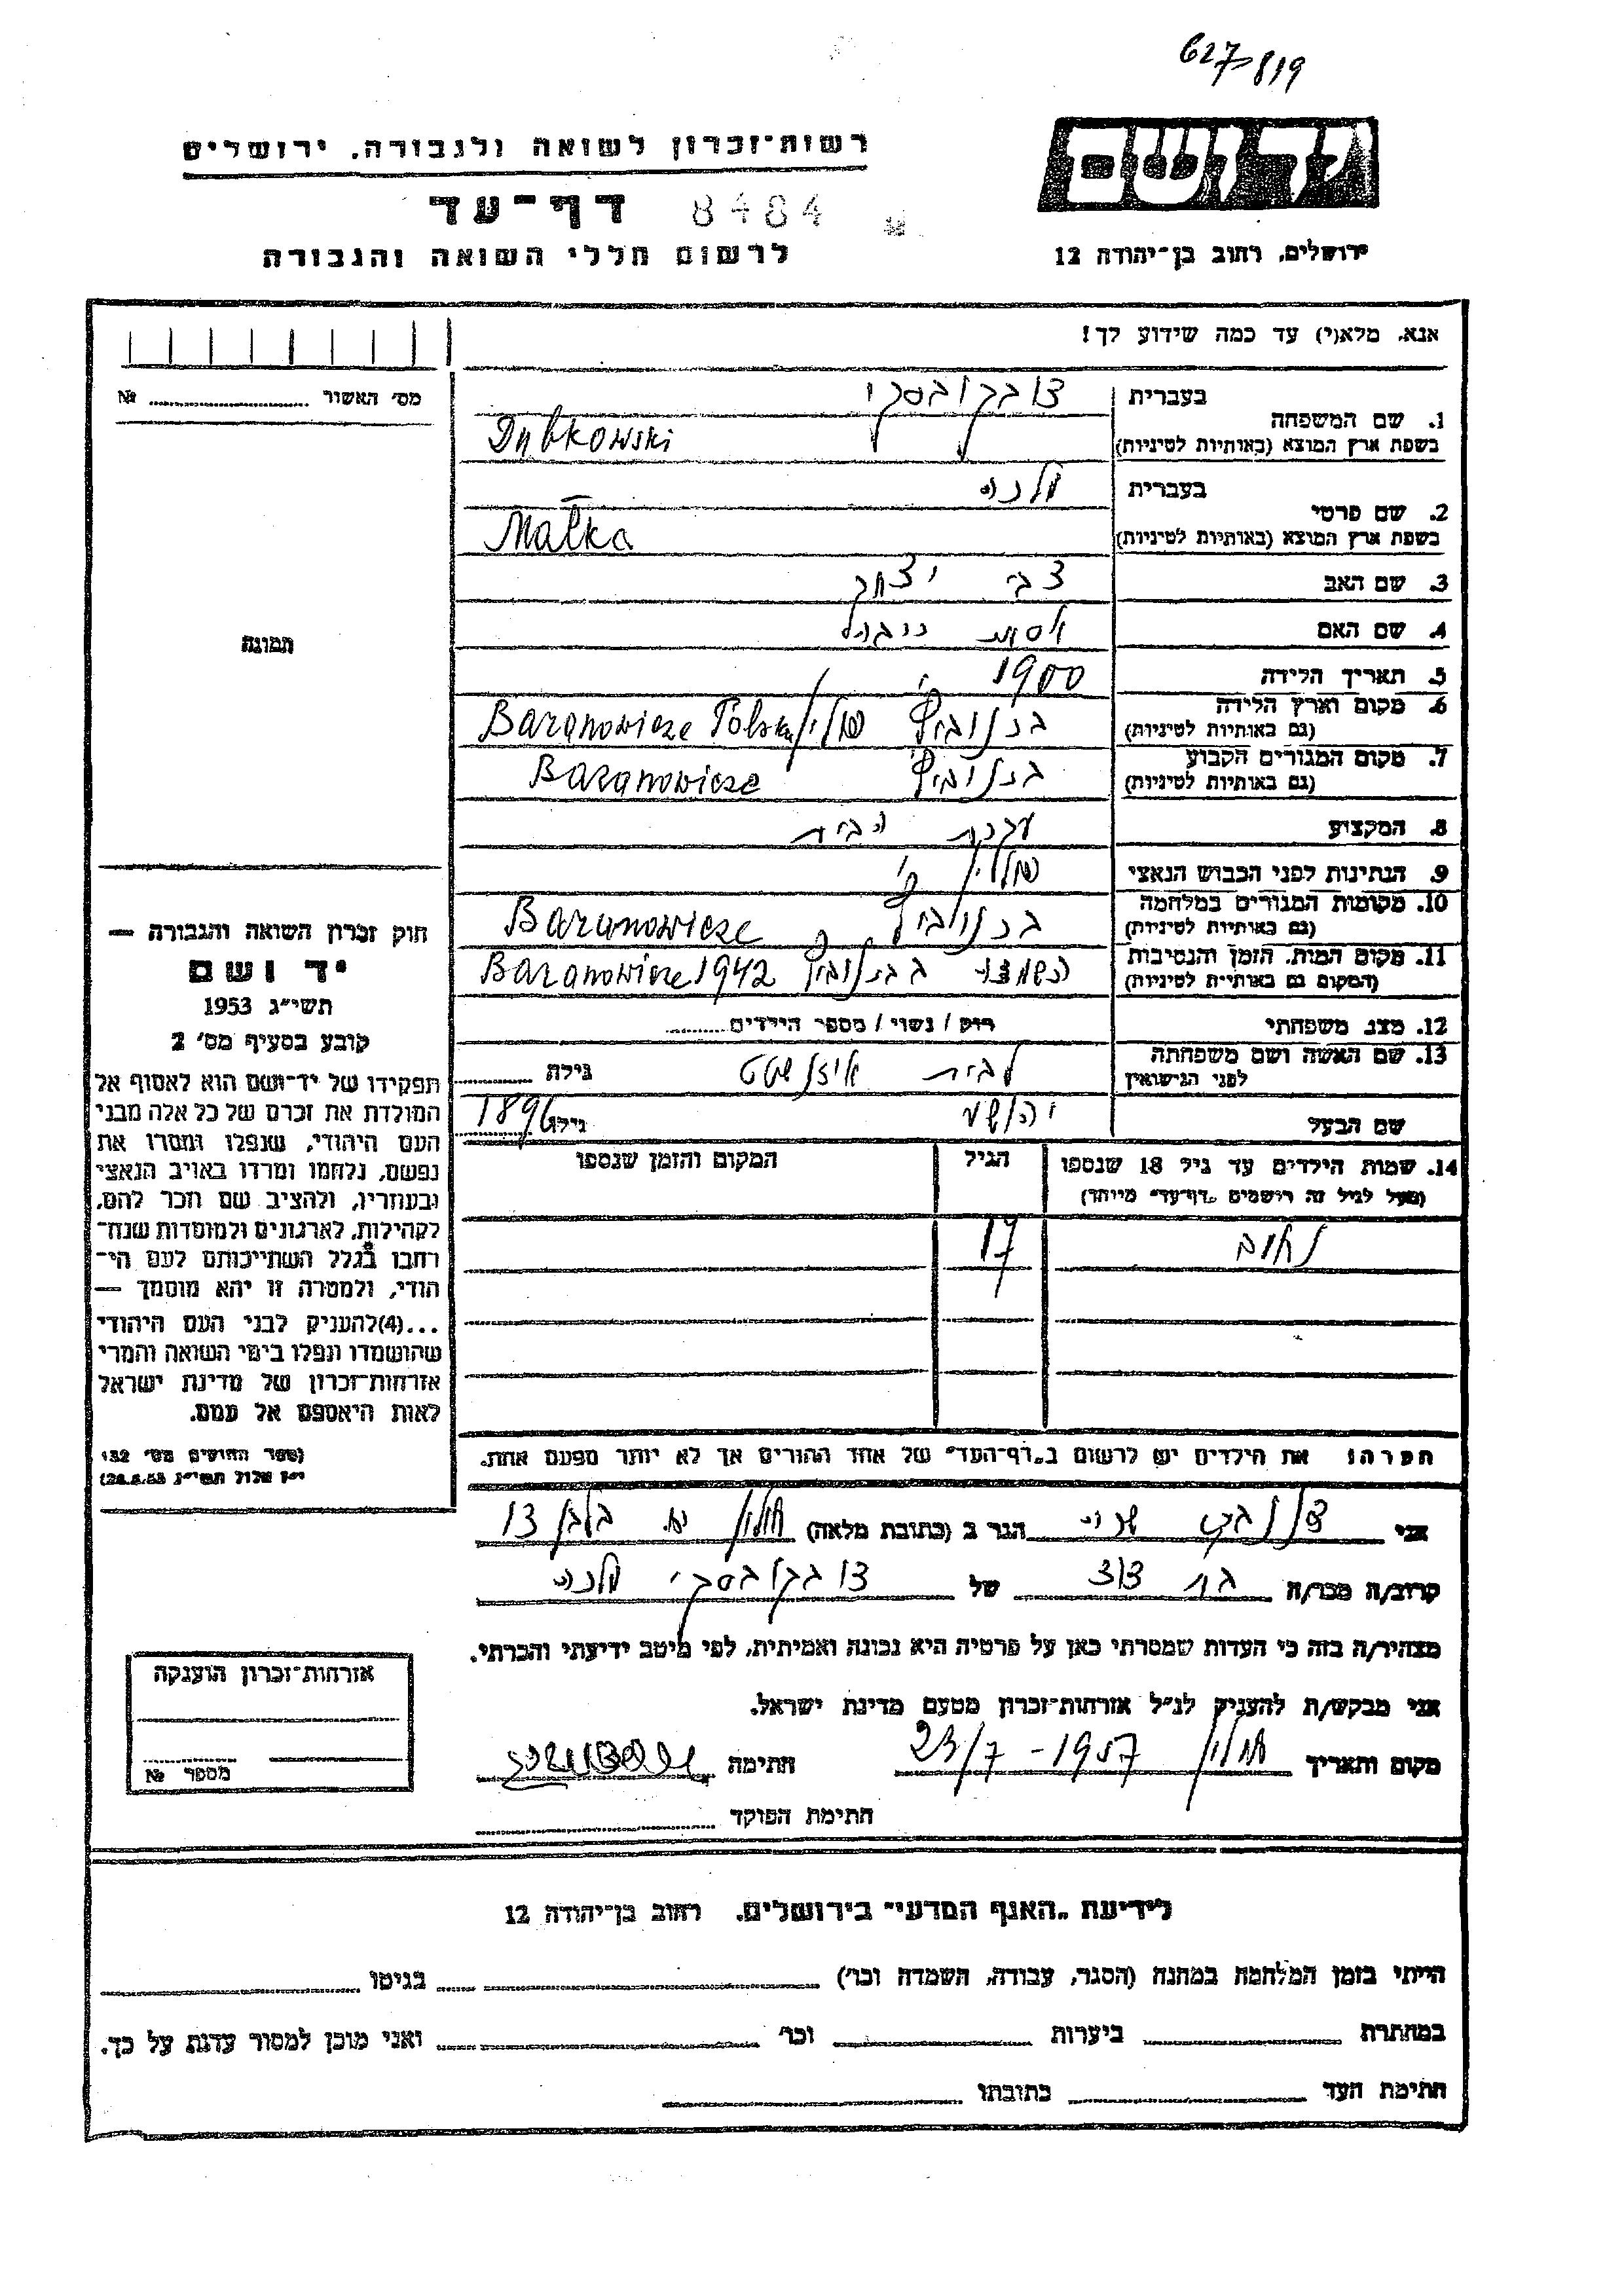 627-819
יד ושם
רשות־זכרון לשואה ולגבורה, ירושלים
דף־עד 8484
לרשום חללי השואה והגבורה
ירושלים, רחוב בן־יהודה 12
אנא, מלא(י) עד כמה שידוע לך!
מס' האשור № 
1. שם המשפחה
בעברית
בשפת ארץ המוצא (באותיות לטיניות)
Dubkowski
2. שם פרטי
בעברית מלכה
בשפת ארץ המוצא (באותיות לטיניות) Małka
3. שם האב צבי יצחק
4. שם האם
5. תאריך הלידה 1900
6. מקום וארץ הלידה
(גם באותיות לטיניות) ברנוביץ פולין Baranowicze Polska
7. מקום המגורים הקבוע
(גם באותיות לטיניות) ברנוביץ Baranowicze
8. המקצוע עקרת הבית
9. הנתינות לפני הכבוש הנאצי
10. מקומות המגורים במלחמה
(גם באותיות לטיניות) ברנוביץ Baranowicze
11. מקום המות, הזמן והנסיבות
(המקום גם באותיות לטיניות) בברנוביץ Baranowicze 1942
12. מצב משפחתי רווק / נשוי / מספר הילדים
13. שם האשה ושם משפחתה
לפני הנישואין לבית גילה
שם הבעל יהושע גילו 1896
14. שמות הילדים עד גיל 18 שנספו
(מעל לגיל זה רושמים "דף־עד" מיוחד)
הגיל
המקום והזמן שנספו
נחום 17
תמונה
חוק זכרון השואה והגבורה —
יד ושם
תשי"ג 1953
קובע בסעיף מס' 2
תפקידו של יד־ושם הוא לאסוף אל
המולדת את זכרם של כל אלה מבני
העם היהודי, שנפלו ומסרו את
נפשם, נלחמו ומרדו באויב הנאצי
ובעוזריו, ולהציב שם וזכר להם,
לקהילות, לארגונים ולמוסדות שנח־
רבו בגלל השתייכותם לעם הי־
הודי, ולמטרה זו יהא מוסמך —
...(4)להעניק לבני העם היהודי
שהושמדו ונפלו בימי השואה והמרי
אזרחות־זכרון של מדינת ישראל
לאות היאספם אל עמם.
(ספר החוקים מס' 132
י"ז אלול תשי"ג 28.8.53)
הערה: את הילדים יש לרשום ב"דף־העד" של אחד ההורים אך לא יותר מפעם אחת.
אני הגר ב (כתובת מלאה) חולון 13
קרוב/ה מכר/ה בת דוד של מלכה
מצהיר/ה בזה כי העדות שמסרתי כאן על פרטיה היא נכונה ואמיתית, לפי מיטב ידיעתי והכרתי.
אני מבקש/ת להעניק לנ"ל אזרחות־זכרון מטעם מדינת ישראל.
מקום ותאריך חולון 23/7-1957 חתימה
חתימת הפוקד
אזרחות־זכרון הוענקה
מספר №
לידיעת "האגף המדעי" בירושלים, רחוב בן־יהודה 12
הייתי בזמן המלחמה במחנה (הסגר, עבודה, השמדה וכו') בגיטו
במחתרת ביערות וכו' ואני מוכן למסור עדות על כך.
חתימת העד כתובתו